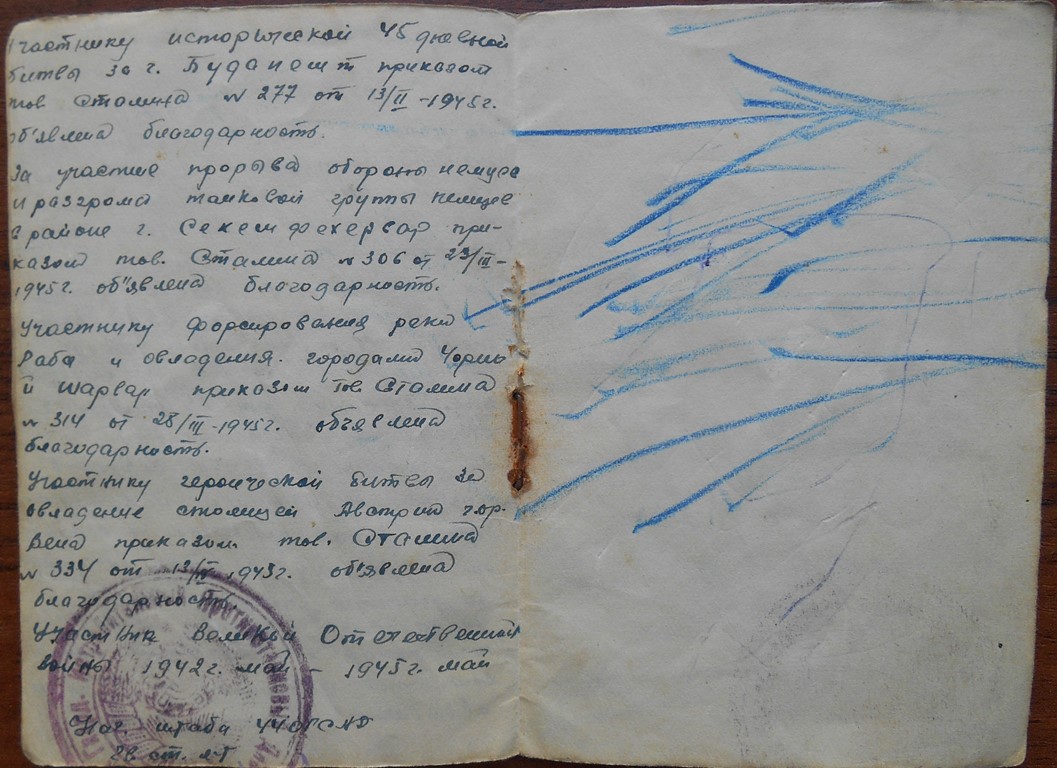 Участнику исторической 45 дневной
битвы за г. Будапешт приказом
тов Сталина № 277 от 13/II-1945г.
об'явлена благодарность.
За участие прорыва обороны немцев
и разгрома танковой группы немцев
в районе г. Секешфехервар при-
казом тов. Сталина № 306 от 23/III-
1945г. об'явлена благодарность.
Участнику форсирования реки
Раба и овладения городами Чорно
и Шарвар приказом тов Сталина
№ 314 от 28/III-1945г. объявлена
благодарность.
Участнику героической битвы за
овладение столицей Австрии гор.
Вена приказом тов. Сталина
№ 334 от 13/IV 1945г. об'явлена
благодарность.
Участник Великой Отечественной
войны 1942г. май - 1945г. май
Нач. штаба
гв ст. л-т